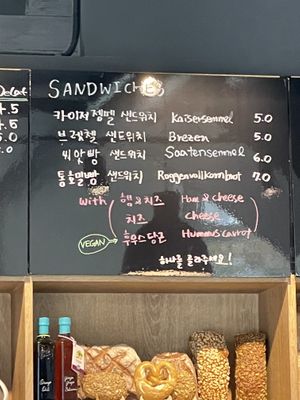 Decaf
4.5
4.5
5.0
5.0
SANDWICHES
카이저젬멜 샌드위치 Kaisersemmel 5.0
브레첼 샌드위치 Brezen 5.0
씨앗빵 샌드위치 Saatensemmel 6.0
통호밀빵 샌드위치 Roggenvollkornbrot 7.0
With 햄&치즈 Ham & cheese
치즈 cheese
VEGAN 후무스 당근 Hummus carrot
하나를 골라주세요!